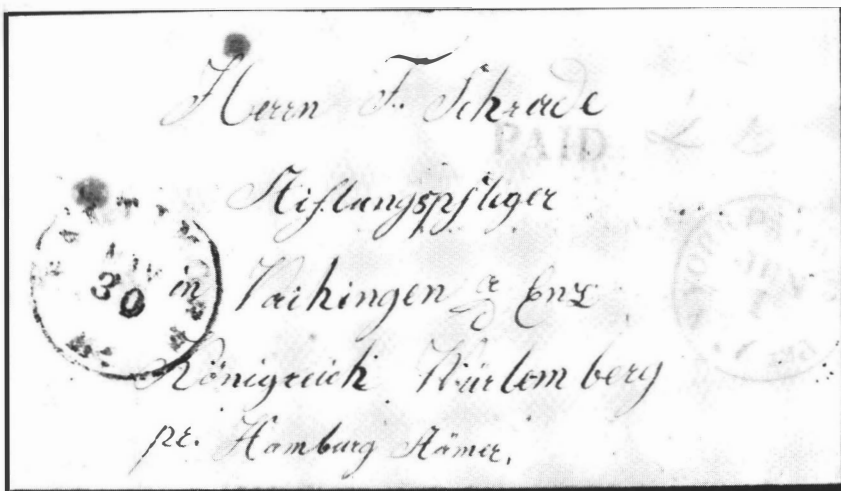 Herrn F. Schrade
PAID
Stiftungspfleger
30
in Vaihingen a/d Enz
Königreich Würtemberg
pr. Hamburg Stämer.